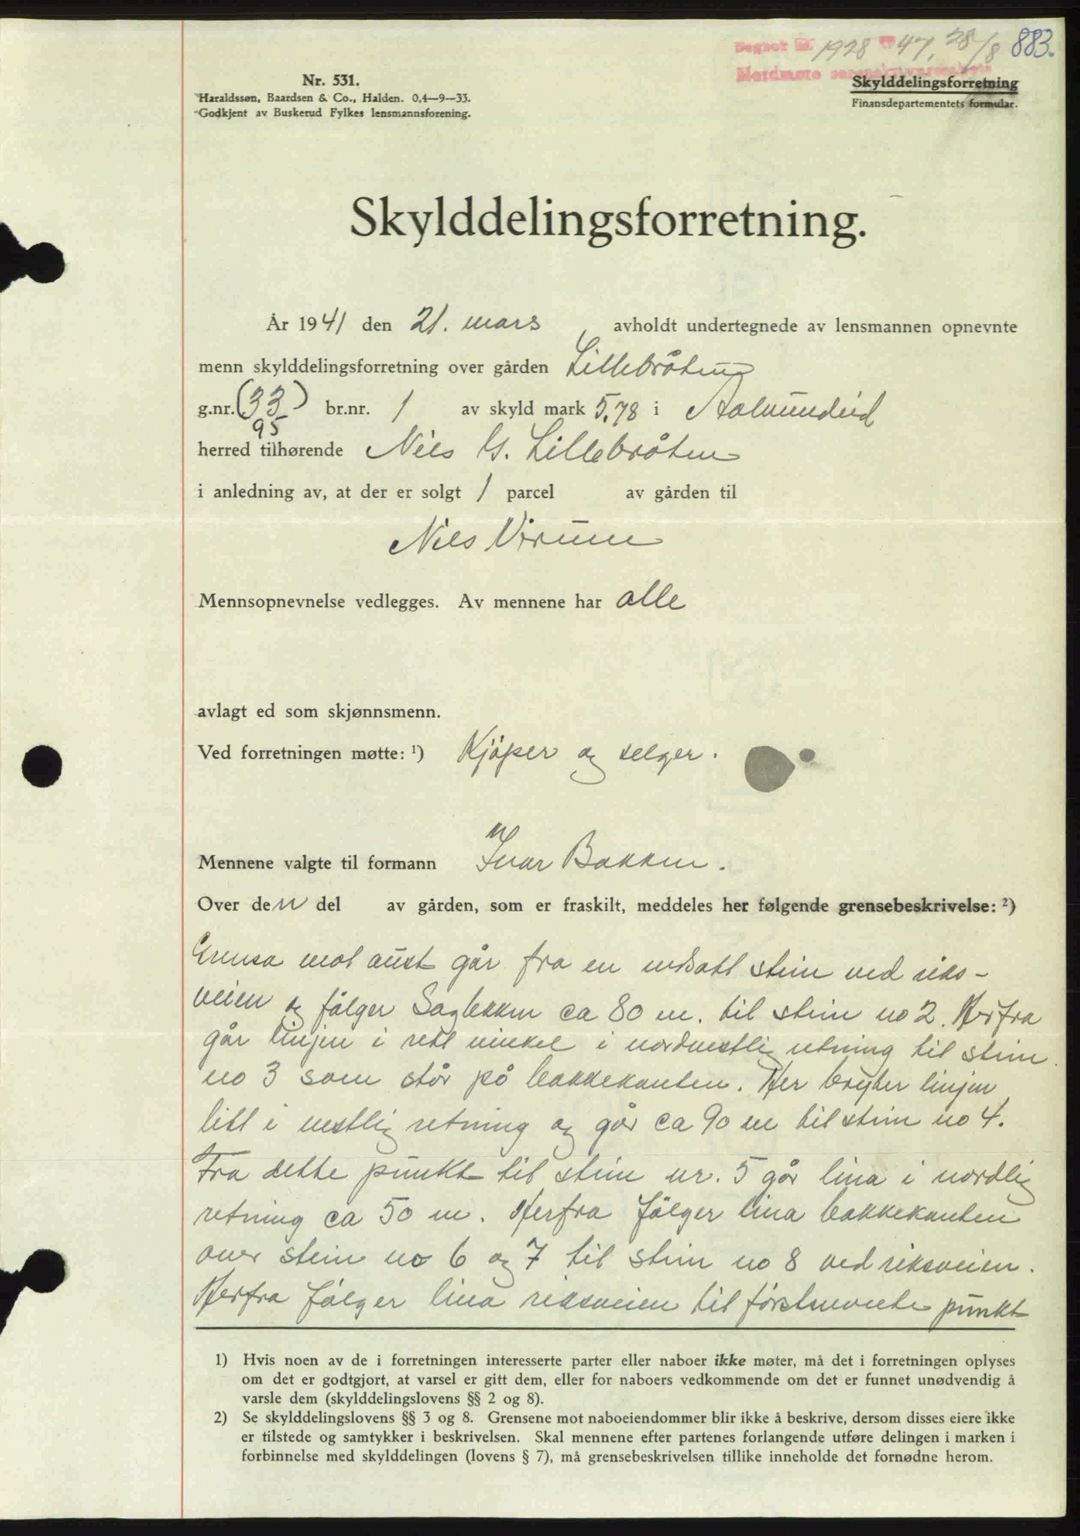 Dagbok nr. 1928 19 47, 28/8 883.
Nordmøre sorenskriverembete
Nr. 531.
Haraldssøn, Baardsen & Co., Halden. 0,4—9—33.
Godkjent av Buskerud Fylkes lensmannsforening.
Skylddelingsforretning
Finansdepartementets formular.
Skylddelingsforretning.
År 1941 den 21. mars, avholdt undertegnede av lensmannen opnevnte
menn skylddelingsforretning over gården Lillebråten
g.nr. (33) br.nr. 1 av skyld mark 5,78 i
95
herred tilhørende Nils G. Lillebråten
i anledning av, at der er solgt 1 parcel av gården til
Nils Virum
Mennsopnevnelse vedlegges. Av mennene har alle
avlagt ed som skjønnsmenn.
Ved forretningen møtte: ¹) Kjöper og selger.
Mennene valgte til formann Ivar Bakken.
Over den del av gården, som er fraskilt, meddeles her følgende grensebeskrivelse: ²)
Grensa mot aust går fra en nedsatt stein ved riks-
veien og fölger Sagbekken ca 80 m. til stein no 2. Herfra
går linjen i rett vinkel i nordvestlig retning til stein
no 3 som står på bakkekanten. Her bryter linjen
litt i vestlig retning og går ca 90 m til stein no 4.
Fra dette punkt til stein nr. 5 går lina i nordlig
retning ca 50 m. Herfra fölger lina bakkekanten
over stein no 6 og 7 til stein no 8 ved riksveien.
Herfra fölger lina riksveien til förstnevnte punkt
1) Hvis noen av de i forretningen interesserte parter eller naboer ikke møter, må det i forretningen oplyses
om det er godtgjort, at varsel er gitt dem, eller for naboers vedkommende om det er funnet unødvendig å
varsle dem (skylddelingslovens §§ 2 og 8).
2) Se skylddelingslovens §§ 3 og 8. Grensene mot naboeiendommer blir ikke å beskrive, dersom disses eiere ikke
er tilstede og samtykker i beskrivelsen. Skal mennene efter partenes forlangende utføre delingen i marken i
forbinnelse med skylddelingen (lovens § 7), må grensebeskrivelsen tillike inneholde det fornødne herom.